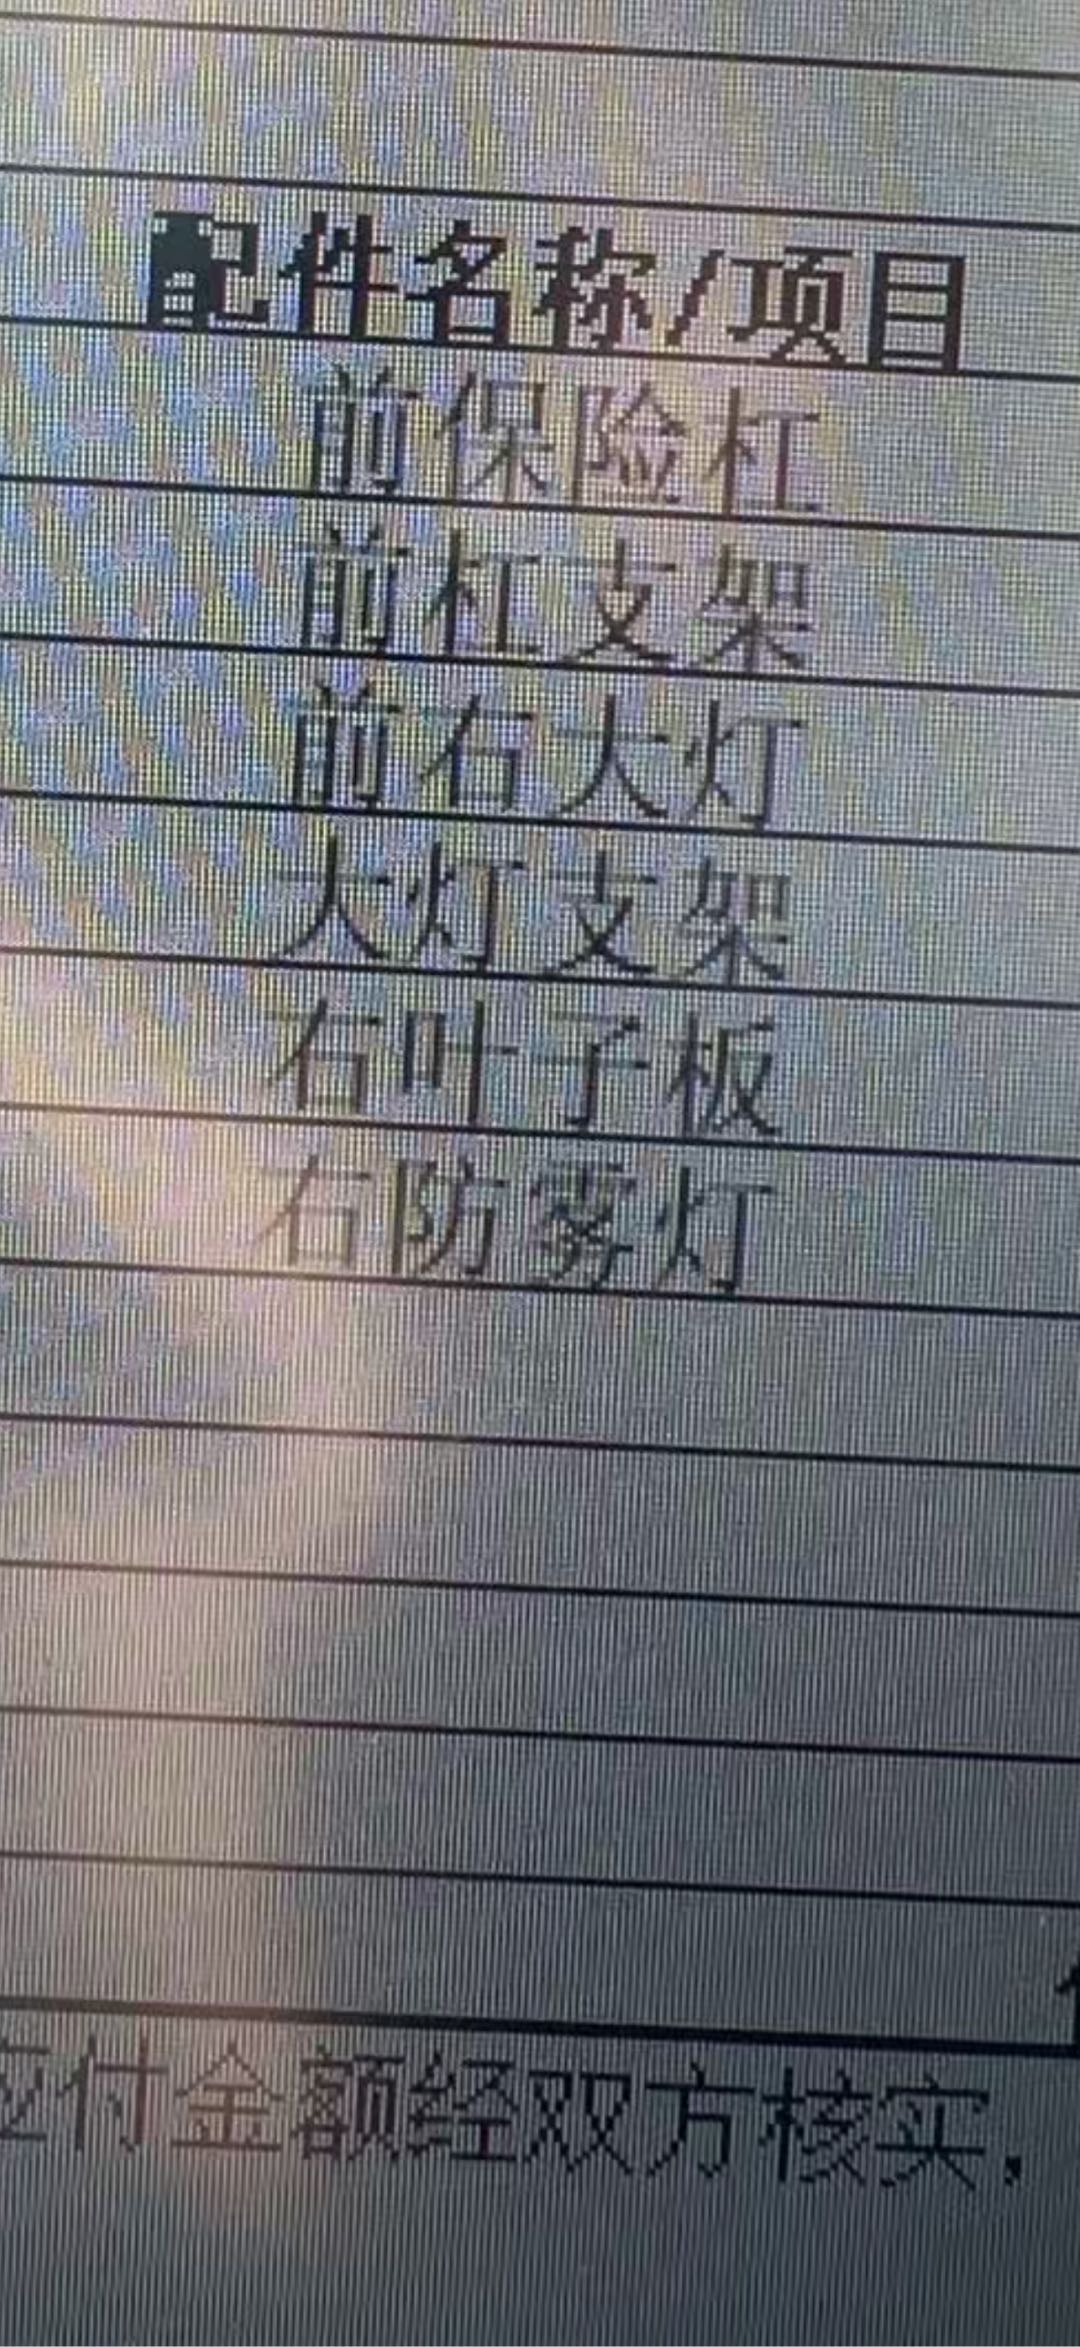 配件名称/项目
前保险杠
前杠支架
前右大灯
大灯支架
右叶子板
右防雾灯
应付金额经双方核实，